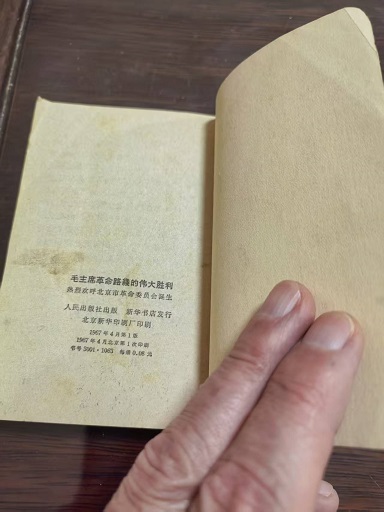 毛主席革命路綫的伟大胜利
热烈欢呼北京市革命委员会誕生
人民出版社出版 新华书店发行
北京新华印刷厂印刷
1967年4月第1版
1967年4月北京第1次印刷
书号3001·1063 每册0.08元